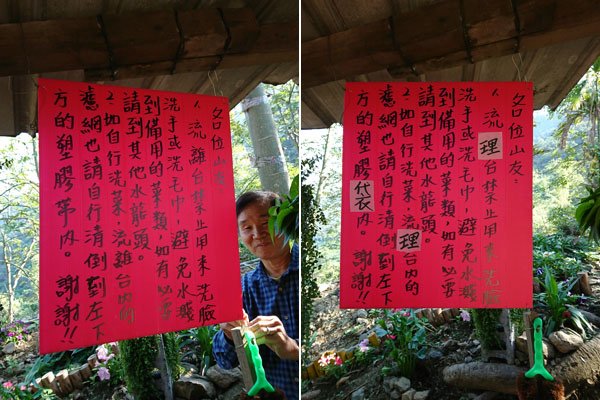 各位山友：
1. 流離台禁止用來洗臉
洗手或洗毛巾，避免水濺
到備用的菜類，如有必要
請到其他水龍頭。
2. 如自行洗菜，流離台內的
濾網也請自行清倒到左下
方的塑膠內。 謝謝!!
各位山友：
1. 流理台禁止用來洗臉
洗手或洗毛巾，避免水濺
到備用的菜類，如有必要
請到其他水龍頭。
2. 如自行洗菜，流理台內的
濾網也請自行清倒到左下
方的塑膠袋內。 謝謝!!